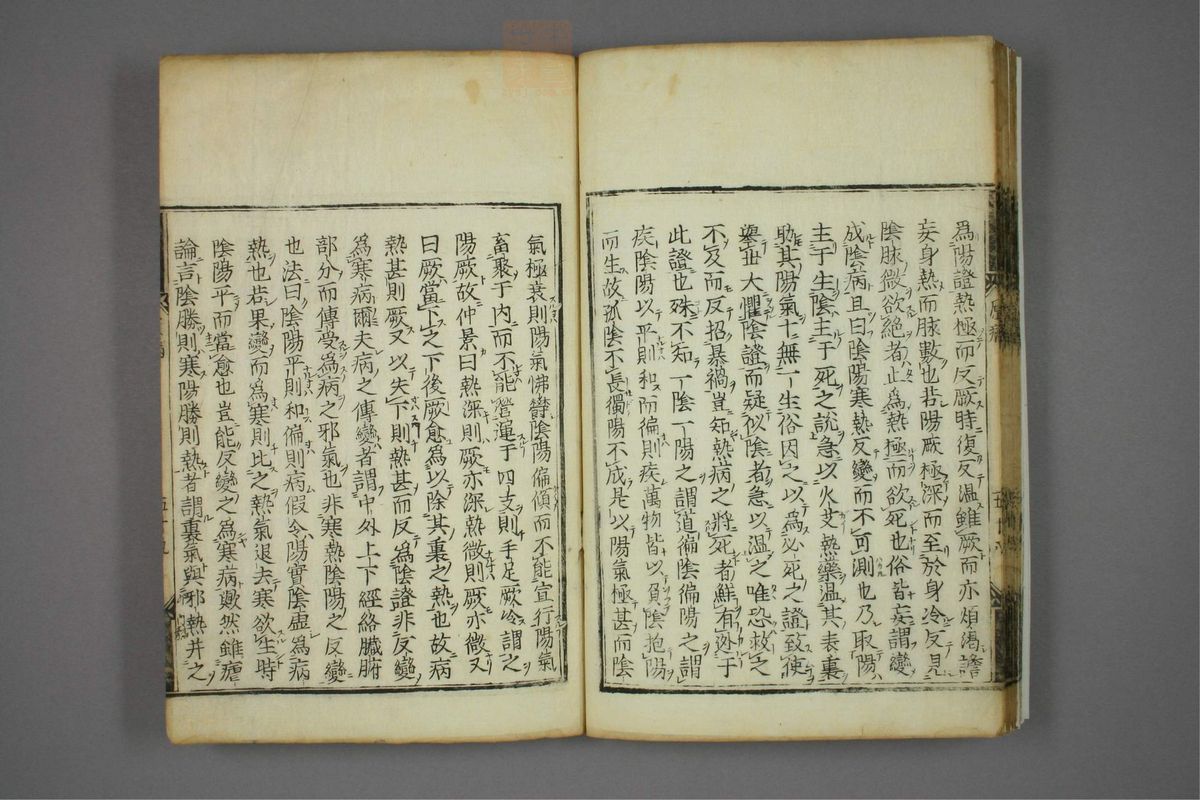 為陽證熱極而反厥時復反温雖厥而亦煩渴譫
妄身熱而脉數也若陽厥極深而至於身冷反見
陰脉微欲絕者止為熱極而欲死也俗皆妄謂變
成陰病且曰陰陽寒熱反變而不可測也乃取陽
主于生陰主于死之說急以火艾熱藥温其表裏
助其陽氣十無一生俗因之以為必死之證致使
舉世大懼陰證而疑似陰者急以温之唯恐救之
不及而反招暴禍豈知熱病之將死者鮮有逃于
此證也殊不知一陰一陽之謂道偏陰偏陽之謂
疾陰陽以平則和而偏則疾萬物皆以負陰抱陽
而生故孤陰不長獨陽不成是以陽氣極甚而陰
氣極衰則陽氣怫鬱陰陽偏傾而不能宣行陽氣
畜聚于内而不能營運于四支則手足厥冷謂之
陽厥故仲景曰熱深則厥亦深熱微則厥亦微又
曰厥當下之下後厥愈為以除其裏之熱也故病
熱甚則厥又以失下則熱甚而反為陰證非反變
為寒病爾夫病之傳變者謂中外上下經絡臟腑
部分而傳受為病之邪氣也非寒熱陰陽之反變
也法曰陰陽平則和偏則病假令陽實陰虛為病
熱也若果變而為寒則比之熱氣退去寒欲生時
陰陽平而當愈也豈能反變之為寒病歟然雖瘧
論言陰勝則寒陽勝則熱者謂裏氣與邪熱并之